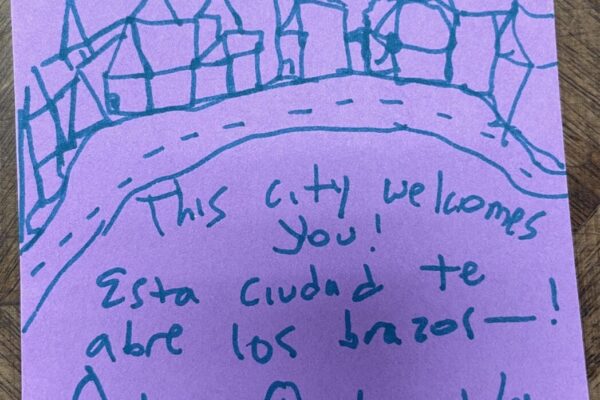 This city welcomes
you!
Esta ciudad te
abre los brazos—!